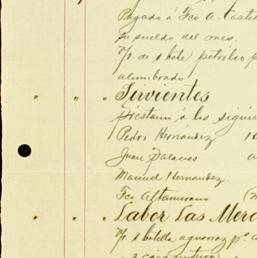 Pagado á Fco A. Casti
su sueldo del mes.
V/. de 1 bote petróleo p
alumbrado
" " " Sirvientes
Prestam á los siguie
Pedro Hernández 18
Juan Palacios a
Manuel Hernandez
Fco Altamirano (2
" " " Labor Las Merc
V/. 1 botella aguarraz pª a